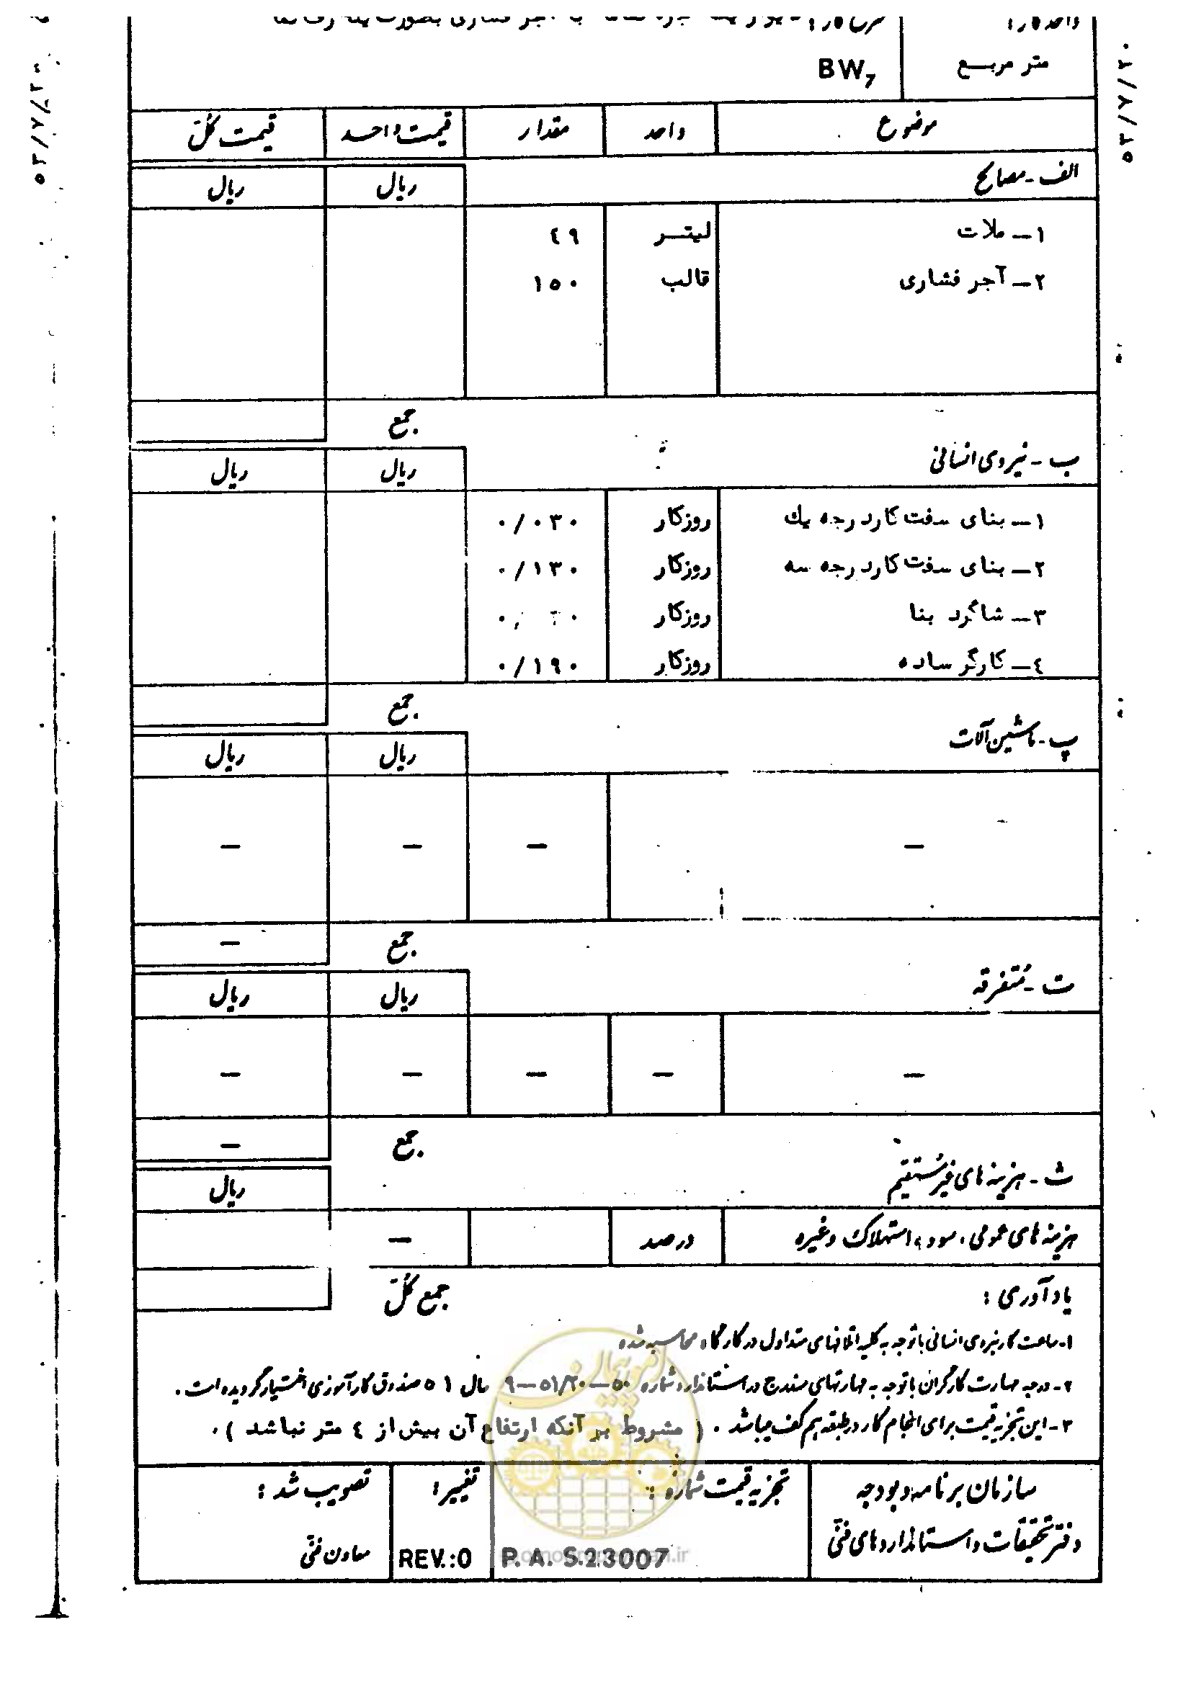 واحد کار:
متر مربع
BW7
۵۳/۷/۲۰
۵۳/۷/۲۰
موضوع واحد مقدار قیمت واحد قیمت کل
الف - مصالح ریال ریال
۱ـ ملات لیتر ٤۹
۲ـ آجر فشاری قالب ۱۵۰
جمع
ب - نیروی انسانی ریال ریال
۱ـ بنای سفت کار درجه یك روزکار ۰/۰۳۰
۲ـ بنای سفت کار درجه سه روزکار ۰/۱۳۰
۳ـ شاگرد بنا روزکار
٤ـ کارگر ساده روزکار ۰/۱۹۰
جمع
پ - ماشین آلات ریال ریال
— — — —
جمع —
ت - متفرقه ریال ریال
— — — — —
جمع —
ث - هزینه های غیرمستقیم ریال
هزینه های عمومی، سود، استهلاک وغیره درصد —
جمع کل
یادآوری:
۱- ساعت کار نیروی انسانی با توجه به کلیه اتلافهای متداول در کارگاه محاسبه شده
۲- درجه مهارت کارگران با توجه به مهارتهای مندرج در استاندارد شماره ۵۰–۵۱/۲۰–۹ سال ۵۱ صندوق کارآموزی اختیار گردیده است.
۳- این تجزیه قیمت برای انجام کار در طبقه هم کف میباشد. (مشروط بر آنکه ارتفاع آن بیش از ٤ متر نباشد).
سازمان برنامه و بودجه
دفتر تحقیقات و استانداردهای فنی
تجزیه قیمت شماره:
P. A. S.2.3007
تغییر:
REV.:0
تصویب شد:
معاون فنی